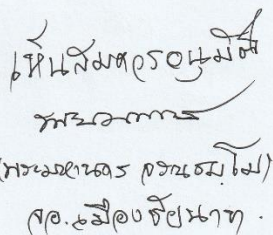 เห็นสมควรอนุมัติ
(พระมหานคร จรณธมฺโม)
จอ.เมืองชัยนาท.